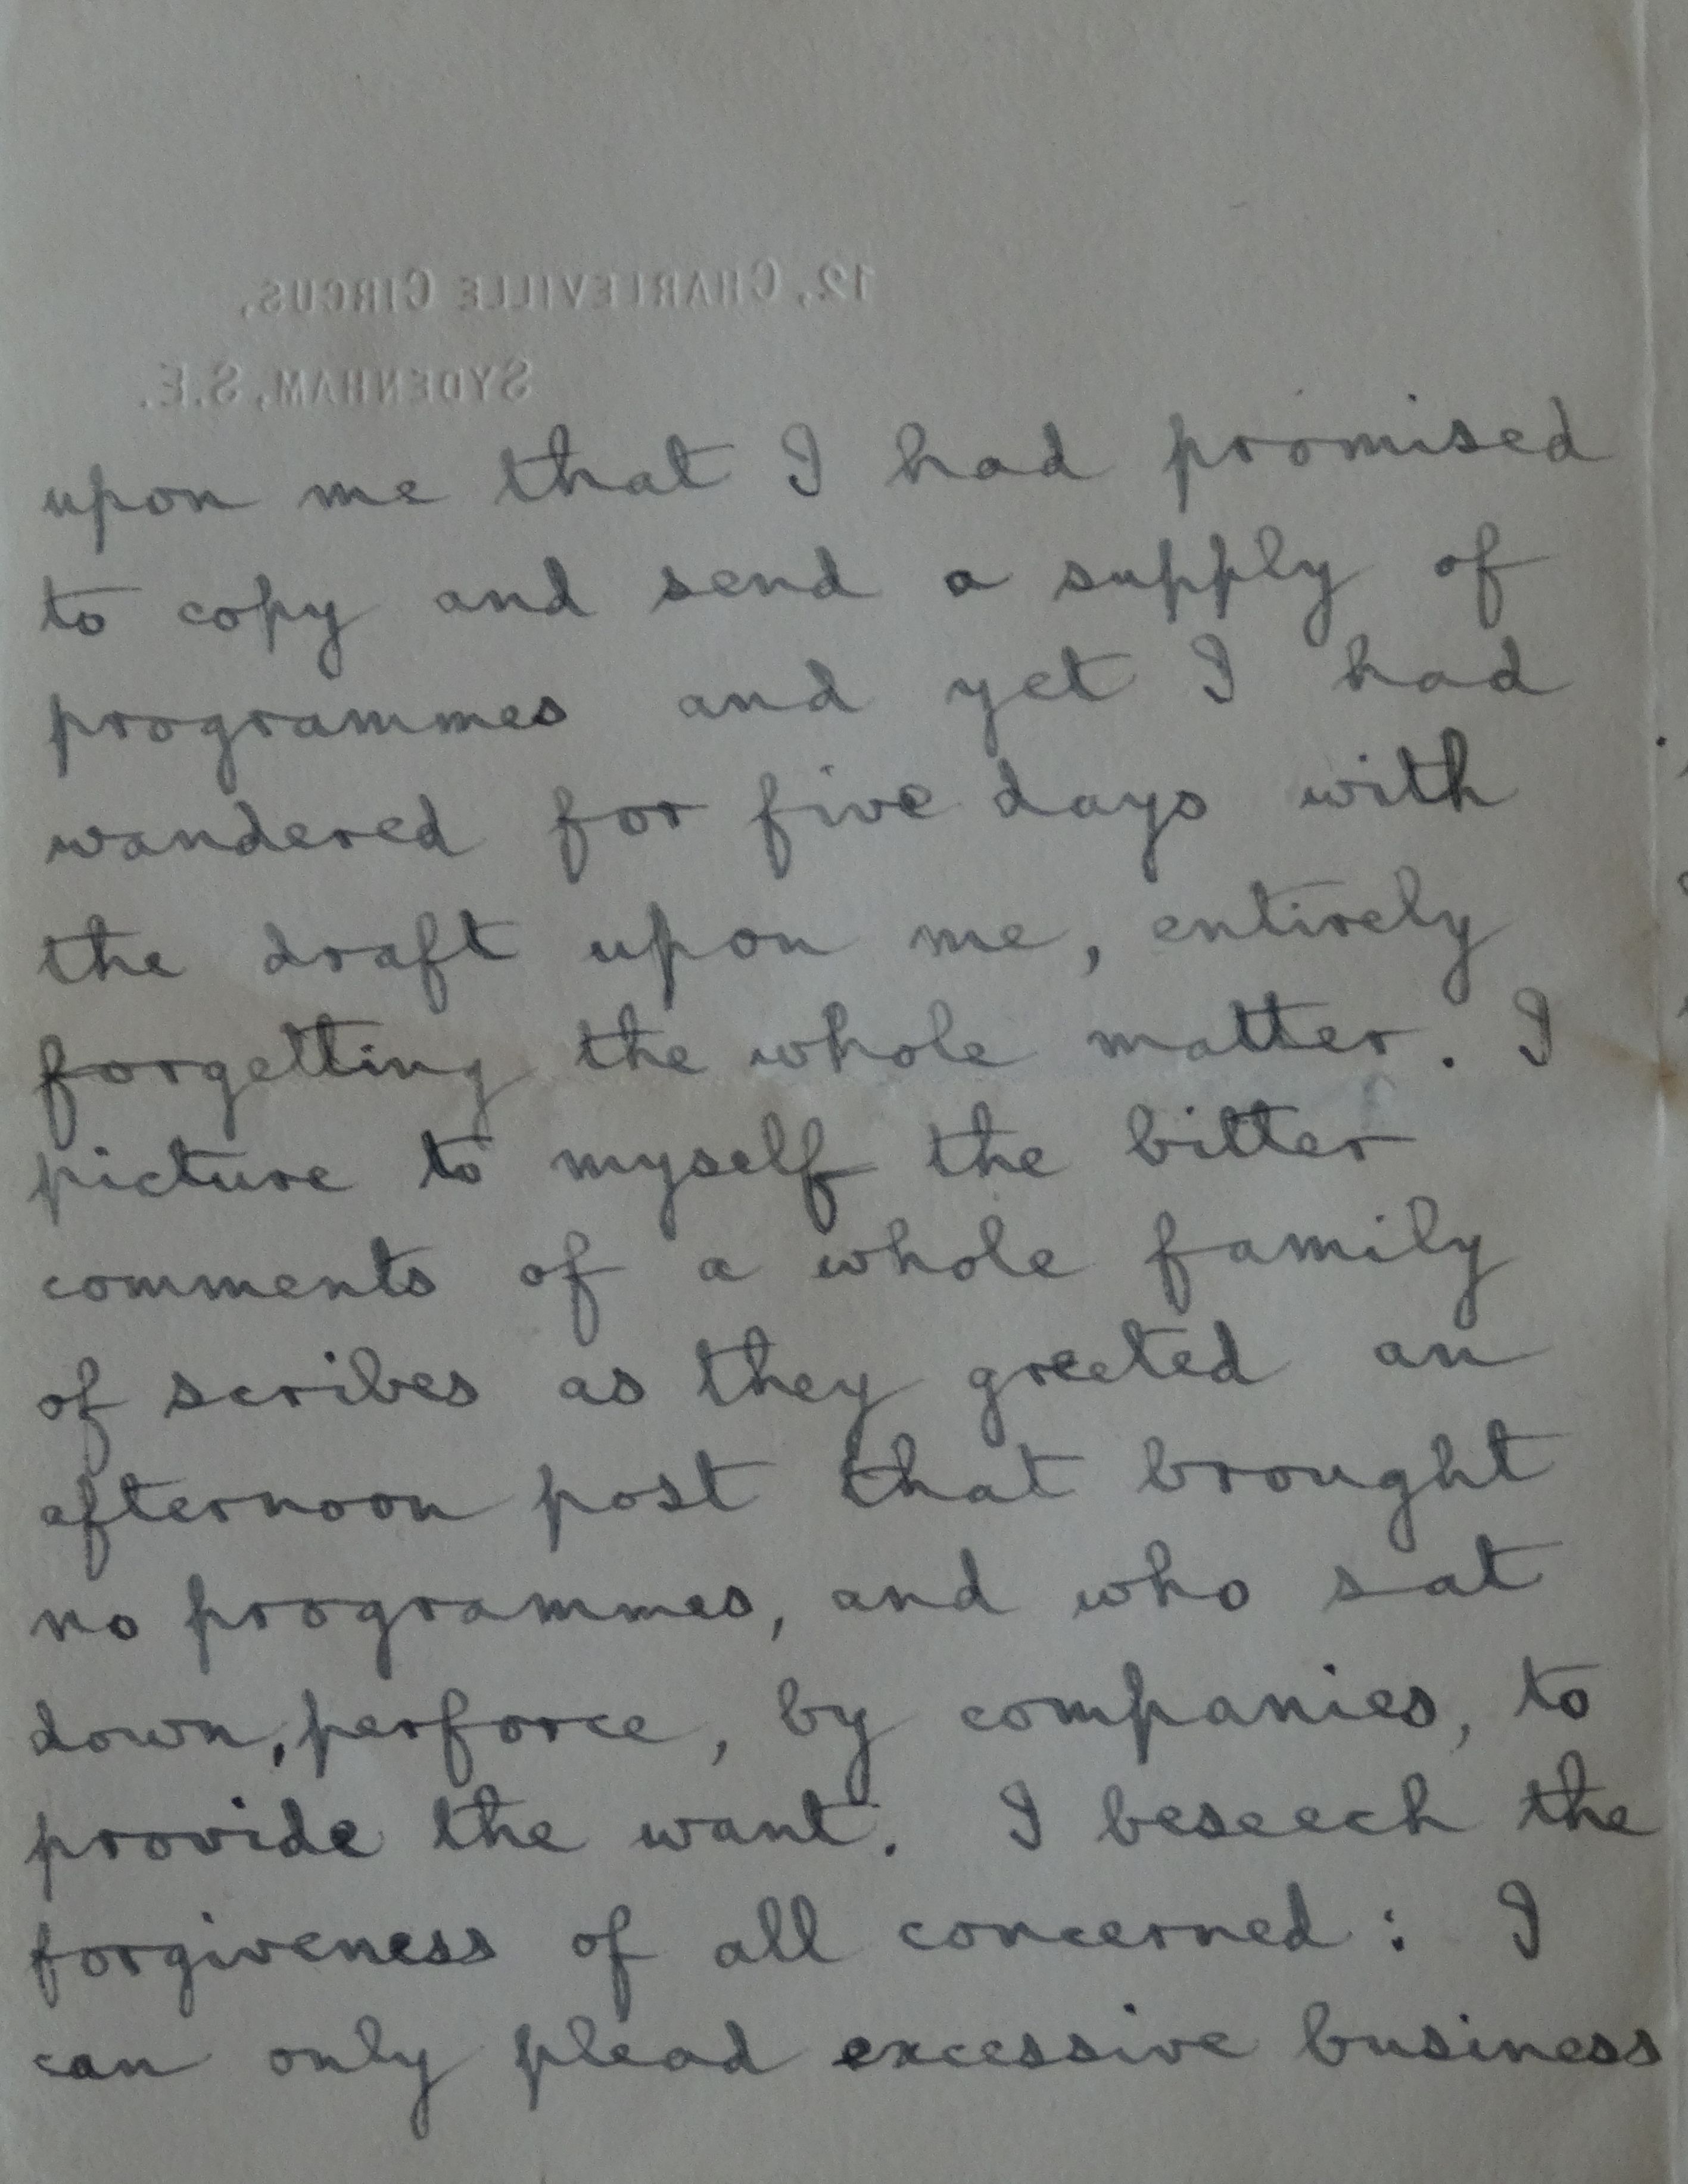 12, CHARLEVILLE CIRCUS,
SYDENHAM, S.E.
upon me that I had promised
to copy and send a supply of
programmes and yet I had
wandered for five days with
the draft upon me, entirely
forgetting the whole matter. I
picture to myself the bitter
comments of a whole family
of scribes as they greeted an
afternoon post that brought
no programmes, and who sat
down, perforce, by companies, to
provide the want. I beseech the
forgiveness of all concerned: I
can only plead excessive business